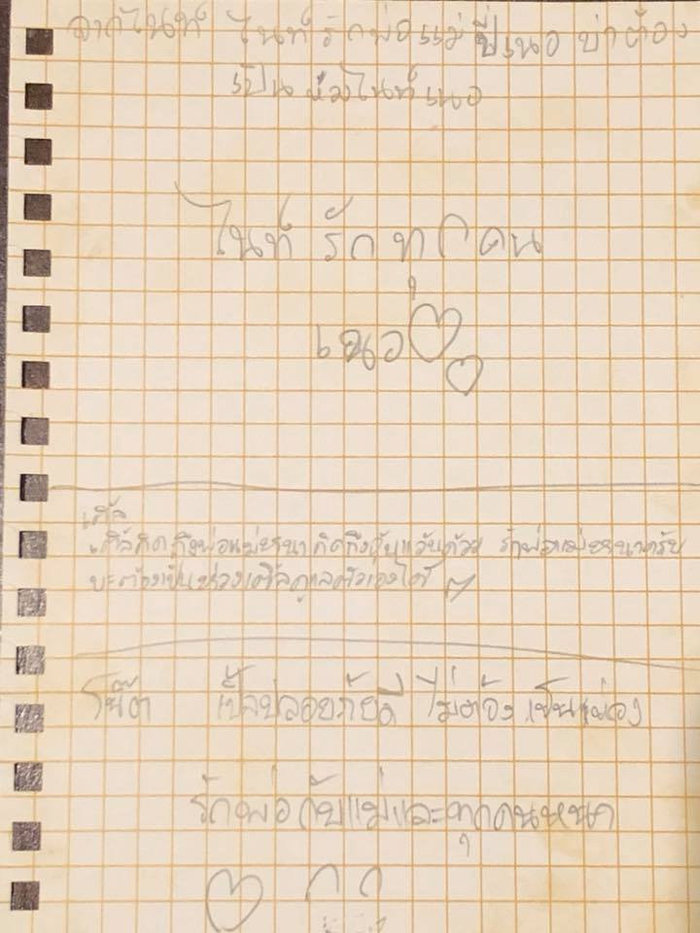 จากไนท์ ไนท์รักพ่อแม่ ปี่เนอ บ่าต้อง
เป็นห่วงไนท์เนอ
ไนท์ รักทุกคน
เนอ
เติ้ล
เติ้ลคิดถึงพ่อแม่ คิดถึง ด้วย รักพ่อแม่
บะต้องเป็นห่วงเติ้ลดูแลตัวเองได้
โน๊ต ปลอยภัยดี ไม่ต้อง เป็นห่วง
รักพ่อกับแม่และทุกคนหนา